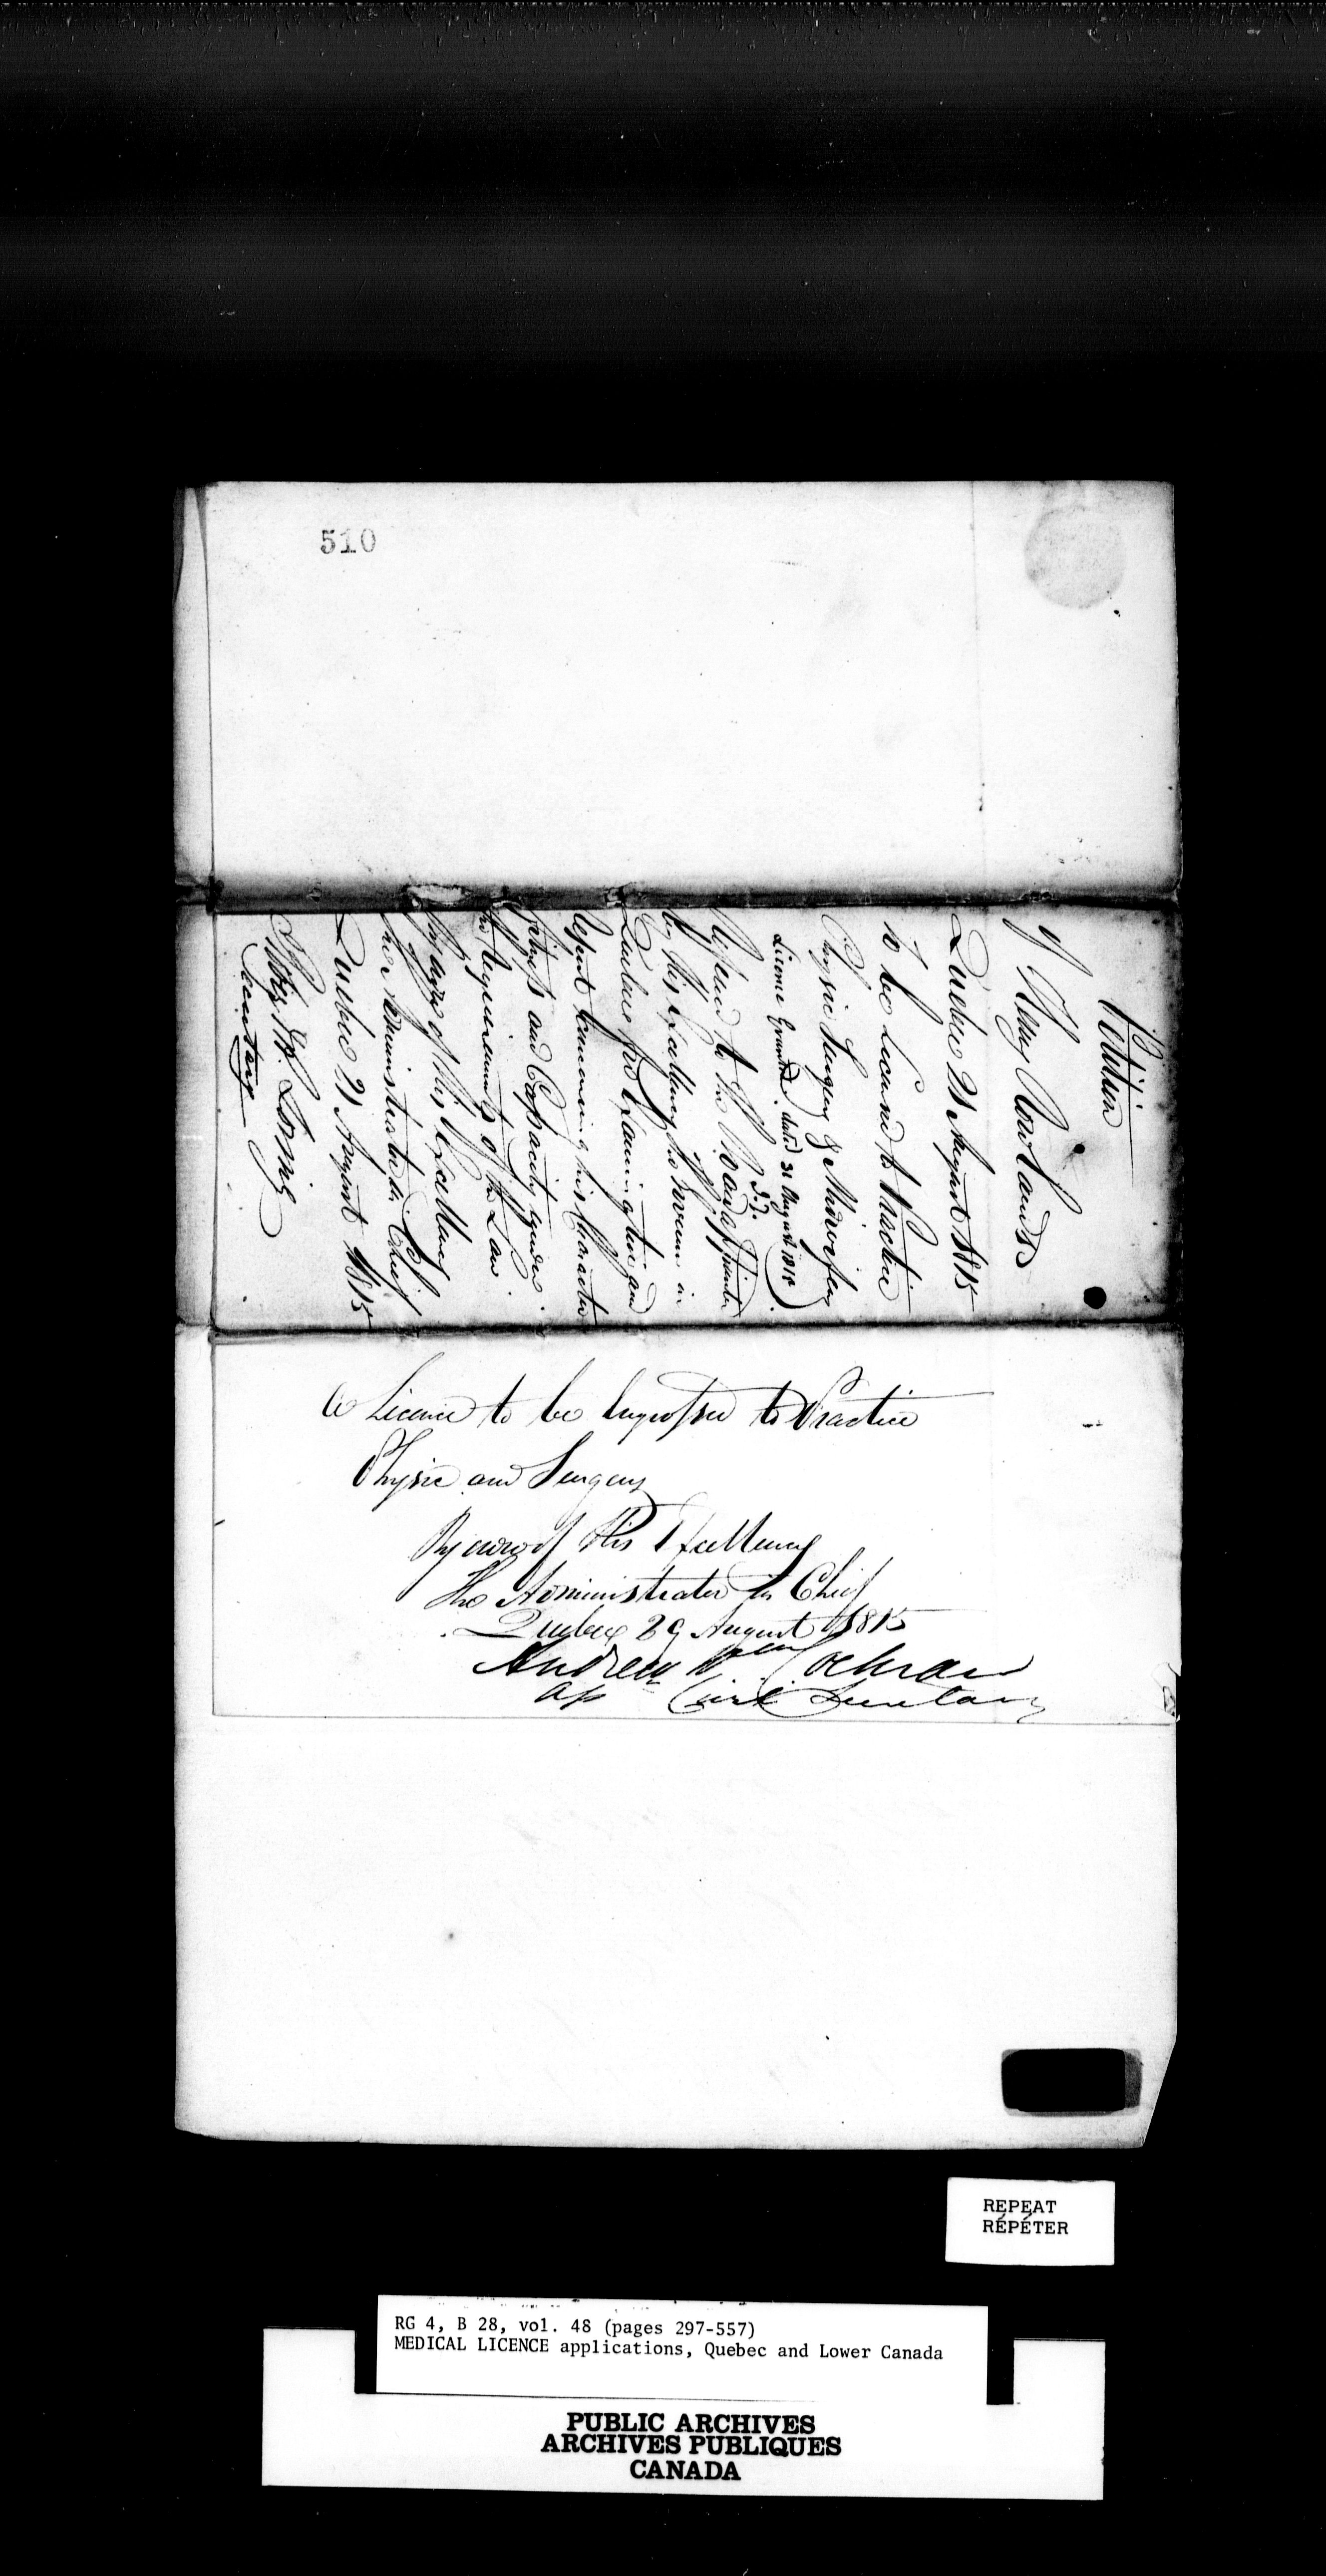 510
Petition
of Henry Rowlands
Quebec 21 August 1815
to be Licensed to Practice
Physic Surgery & Midwifery
Licence Granted dated 31 August 1815
Refered to the Board appointed
by His Excellency the Govern in
Quebec for Examination and
Report concerning his Character
fitness and Capacity under
the requirements of the Law
By order of His Excellency
the Administrator in Chief
Quebec 21 August 1815
Loring
Secretary
A Licence to be Engrossed to Practice
Physic and Surgery
By order of His Excellency
The Administrator in Chief
Quebec 29 August 1815
Andrew Wm Cochran
As Civil Secretary
REPEAT
RÉPÉTER
RG 4, B 28, vol. 48 (pages 297-557)
MEDICAL LICENCE applications, Quebec and Lower Canada
PUBLIC ARCHIVES
ARCHIVES PUBLIQUES
CANADA